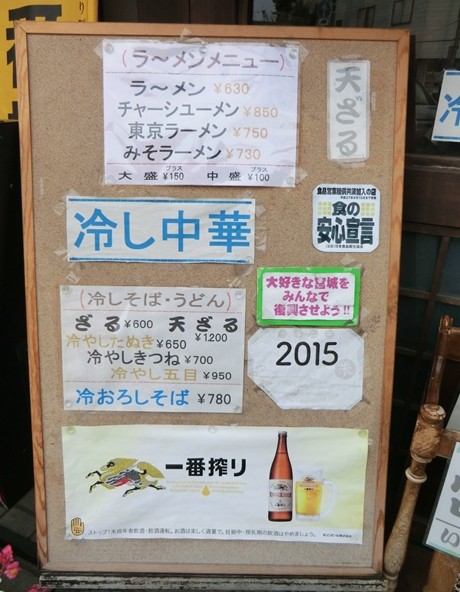 (ラ〜メンメニュー)
ラ〜メン ¥630
チャーシューメン ¥850
東京ラーメン ¥750
みそラーメン ¥730
大盛プラス¥150 中盛プラス¥100
天ざる
食の
安心宣言
冷し中華
大好きな宮城を
みんなで
復興させよう!!
(冷しそば・うどん)
ざる ¥600 天ざる ¥1200
冷やしたぬき ¥650
冷やしきつね ¥700
冷やし五目 ¥950
冷おろしそば ¥780
2015
一番搾り
ストップ!未成年者飲酒・飲酒運転。お酒は楽しく適量で。妊娠中・授乳期の飲酒はやめましょう。
冷